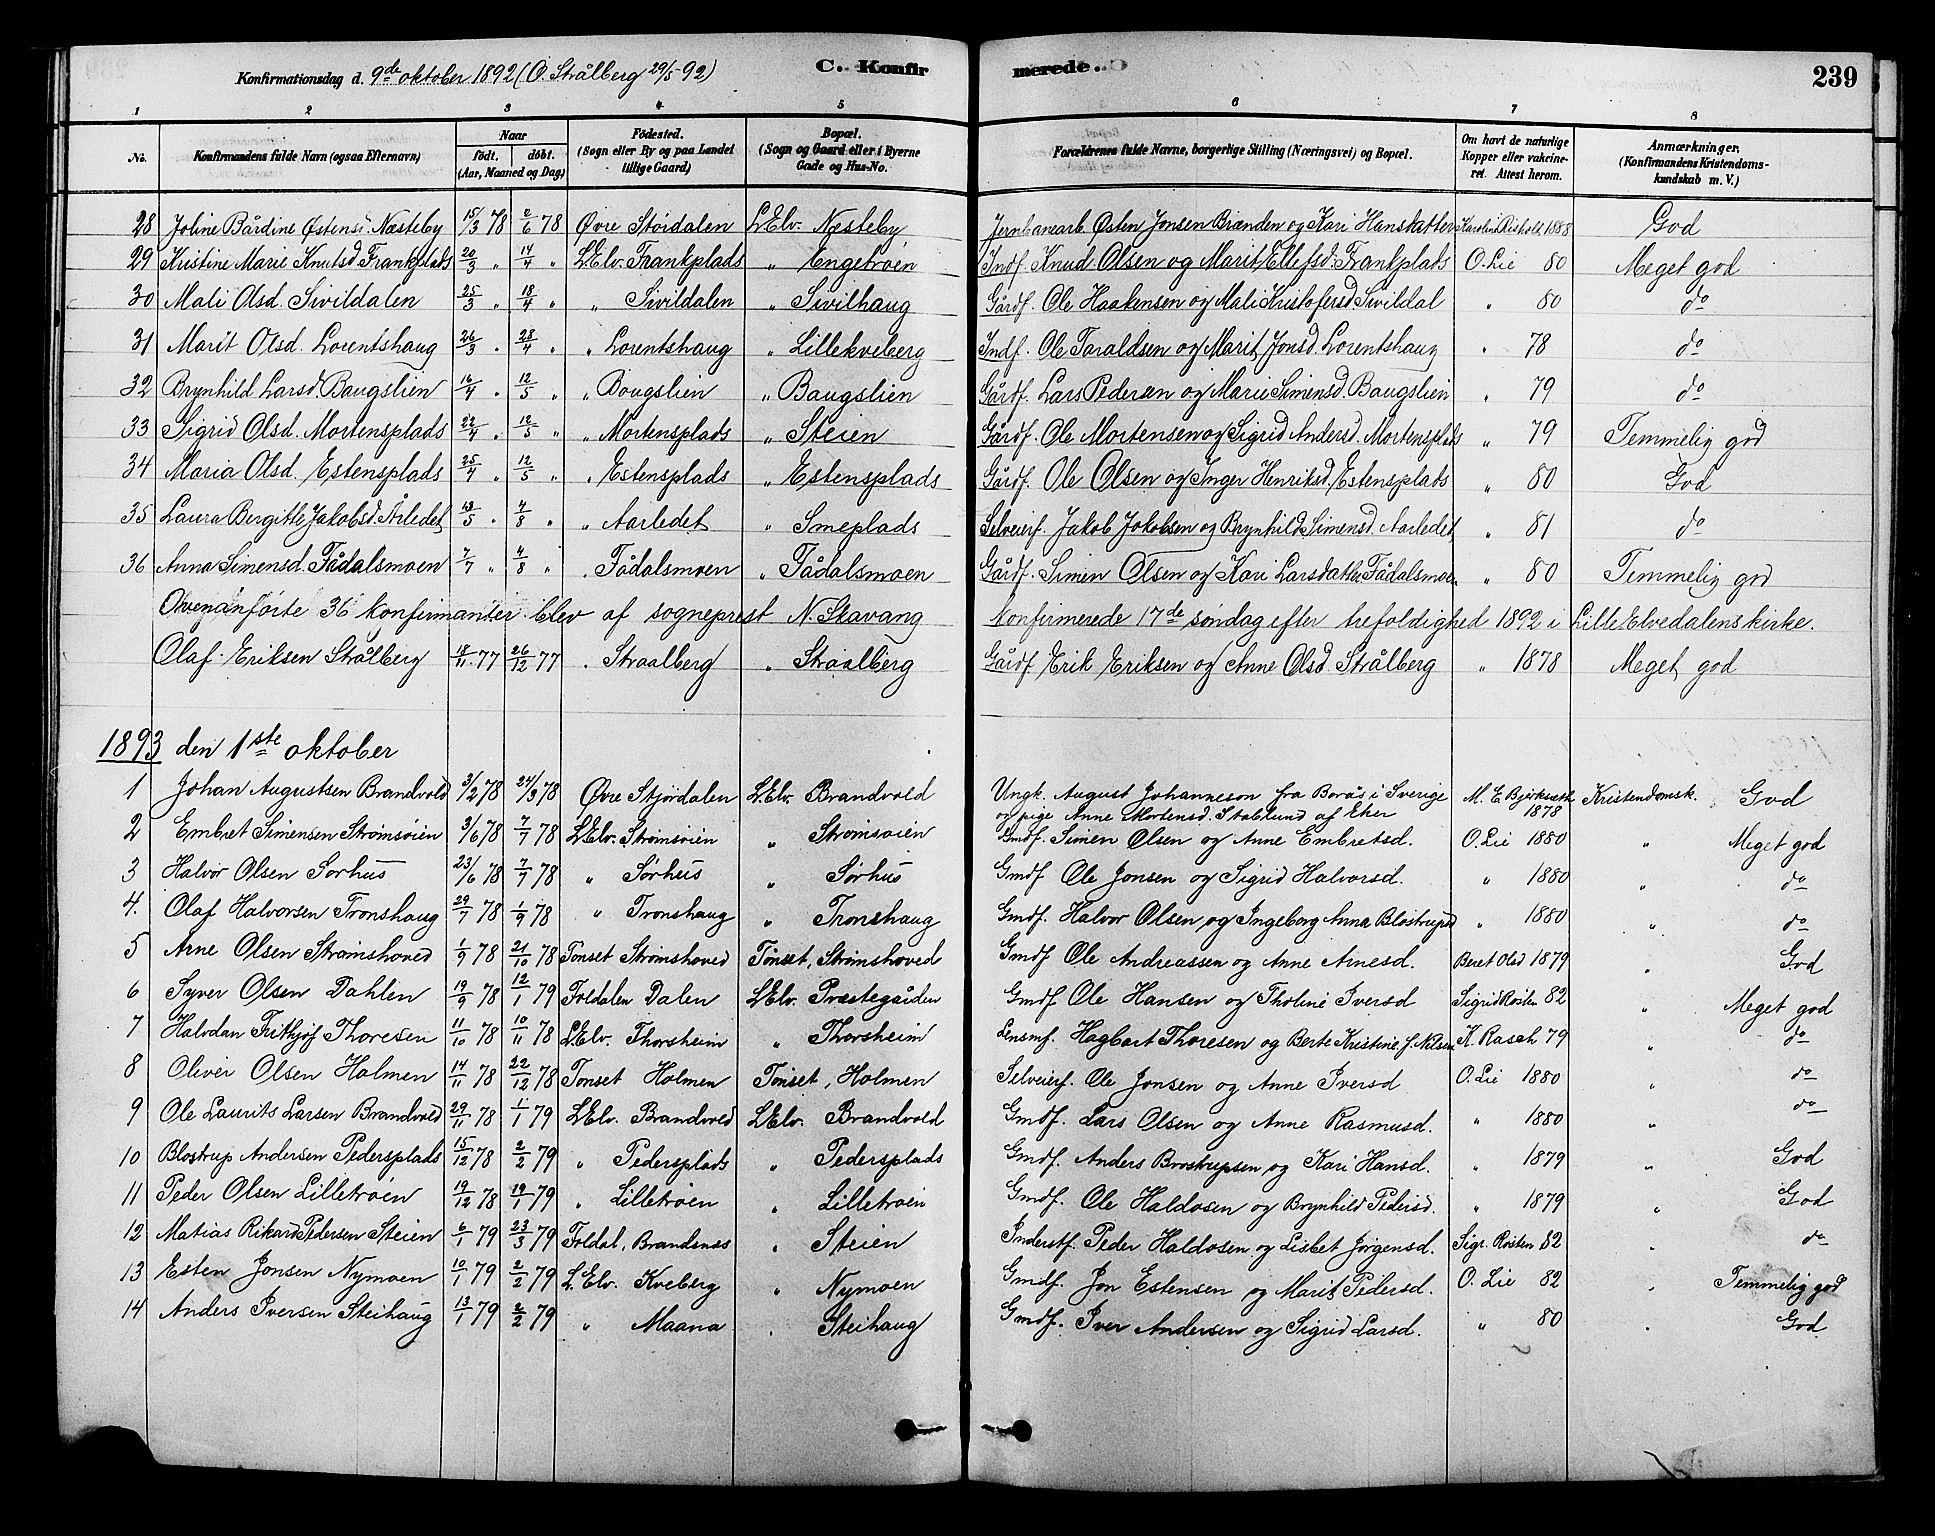 Konfirmationsdag d. 9de oktober 1892 (O. Strålberg 29/5-92) C. Konfirmerede. 239
1 2 3 4 5 6 7 8
No. Konfirmandens fulde Navn (ogsaa Efternavn) Naar født. døbt. (Aar, Maaned og Dag) Fødested. (Sogn eller By og paa Landet tillige Gaard) Bopæl. (Sogn og Gaard eller i Byerne Gade og Hus-No. Forældrenes fulde Navne, borgerlige Stilling (Næringsvei) og Bopæl. Om havt de naturlige Kopper eller vakcineret. Attest herom. Anmærkninger. (Konfirmandens Kristendomskundskab m. V.)
28 Joline Bårdine Østensd. Næsteby 15/3 78 2/6 78 Øvre Størdalen L.Elv. Næsteby Jernbanearb. Østen Jonsen Brænden og Kari Hansdatter 1888 God
29 Kristine Marie Knutsd. Frankplads 20/3 " 14/4 " L.Elv. Frankplads " Engetrøen Indf. Knud Olsen og Marit Ellefsd. Frankplads O. Lie 80 Meget god
30 Mali Olsd. Sivildalen 25/3 " 18/4 " " Sivildalen " Sivilhaug Gårdf. Ole Haakensen og Mali Kristofersd. Sivildal " 80 do
31 Marit Olsd. Lorentshaug 26/3 " 28/4 " " Lorentshaug " Lillekveberg Indf. Ole Taraldsen og Marit Jonsd. Lorentshaug " 78 do
32 Brynhild Larsd. Baugslien 16/4 " 12/5 " " Bougslien " Baugslien Gårdf. Lars Pedersen og Marie Simensd. Baugslien " 79 do
33 Sigrid Olsd. Mortensplads 22/4 " 12/5 " " Mortensplads " Steien Gårdf. Ole Mortensen og Sigrid Andersd. Mortensplads " 79 Temmelig god
34 Maria Olsd. Estensplads 25/4 " 12/5 " " Estensplads " Estensplads Gårdf. Ole Olsen og Inger Henriksd. Estensplads " 80 God
35 Laura Bergitte Jakobsd. Årledet 13/5 " 4/8 " " Aarledet " Smeplads Selveierf. Jakob Jakobsen og Brynhild Simensd. Aarledet " 81 do
36 Anna Simensd. Fådalsmoen 7/7 " 4/8 " " Fådalsmoen " Fådalsmoen Gårdf. Simen Olsen og Kari Larsdatter Fådalsmoen " 80 Temmelig god
Ovenanførte 36 konfirmanter blev af sogneprest N. Skavang konfirmerede 17de søndag efter trefoldighed 1892 i Lille Elvedalens kirke.
Olaf Eriksen Strålberg 18/11 77 26/12 77 " Straalberg " Straalberg Gårdf. Erik Eriksen og Anne Olsd. Strålberg " 1878 Meget god
1893 den 1ste oktober
1 Johan Augustsen Brandvold 3/2 78 24/3 78 Øvre Stjørdalen L.Elv. Brandvold Ungk. August Johanneson fra Borås i Sverige og pige Anne Mortensd. Stablund af Eker M. E. 1878 Kristendomsk. God
2 Embret Simensen Strømsøien 3/6 78 7/7 78 L.Elv. Strømsøien " Strømsøien Gmdf. Simen Olsen og Anne Embretsd. O. Lie 1880 " Meget god
3 Halvor Olsen Sørhus 23/6 78 7/7 78 " Sørhus " Sørhus Gmdf. Ole Jonsen og Sigrid Halvorsd. " 1880 " do
4. Olaf Halvorsen Tronshaug 29/7 78 1/9 78 " Tronshaug " Tronshaug Gmdf. Halvor Olsen og Ingeborg Anna Blostrupsd " 1880 " do
5 Arne Olsen Strømshoved 1/9 78 21/10 78 Tønset Strømshoved Tønset, Strømshoved Gmdf. Ole Andreassen og Anne Arnesd. Beret Olsd 1879 " God
6 Syver Olsen Dahlen 19/9 78 12/1 79 Foldalen Dalen L.Elv. Præstegården Gmdf. Ole Hansen og Tholine Iversd Sigrid Røsten 82 " Meget god
7 Halvdan Frithjof Thoresen 11/10 78 10/11 78 L.Elv. Thorsheim " Thorsheim Lensmf. Hagbart Thoresen og Berte Kristine J. Nilsen K. Rasch 79 " do
8 Oliver Olsen Holmen 14/11 78 22/12 78 Tønset Holmen Tønset, Holmen Selveierf. Ole Jonsen og Anne Iversd O. Lie 1880 " do
9 Ole Laurits Larsen Brandvold 29/11 78 1/1 79 L.Elv. Brandvold L.Elv. Brandvold Gmdf. Lars Olsen og Anne Rasmusd. " 1880 " do
10 Blostrup Andersen Pedersplads 15/12 78 2/2 79 " Pedersplads " Pedersplads Gmdf. Anders Brostrupsen og Kari Hansd. " 1879 " God
11 Peder Olsen Lilletrøen 19/12 78 19/1 79 " Lilletrøen " Lilletrøen Gmdf. Ole Haldosen og Brynhild Pedersd. " 1879 " God
12 Matias Rikard Pedersen Steien 6/1 79 23/3 79 Foldal, Brandsnæs " Steien Inderstf. Peder Haldosen og Lisbet Jørgensd. Sigr. Røsten 82 " do
13 Esten Jonsen Nymoen 10/1 79 2/2 79 L.Elv. Kveberg " Nymoen Gmdf. Jon Estensen og Marit Pedersd. O. Lie 82 " Temmelig god
14 Anders Iversen Steihaug 13/1 79 2/2 79 " Maana " Steihaug Gmdf. Iver Andersen og Sigrid Larsd. " 80 " God